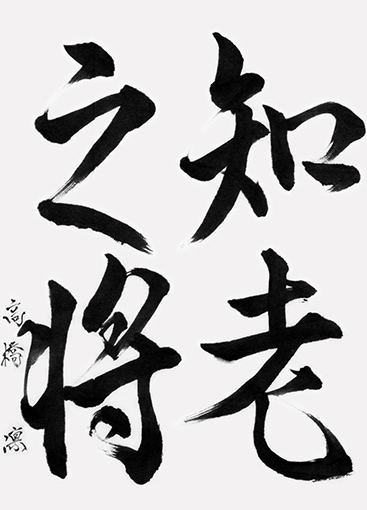 知老
之将
高橋凛